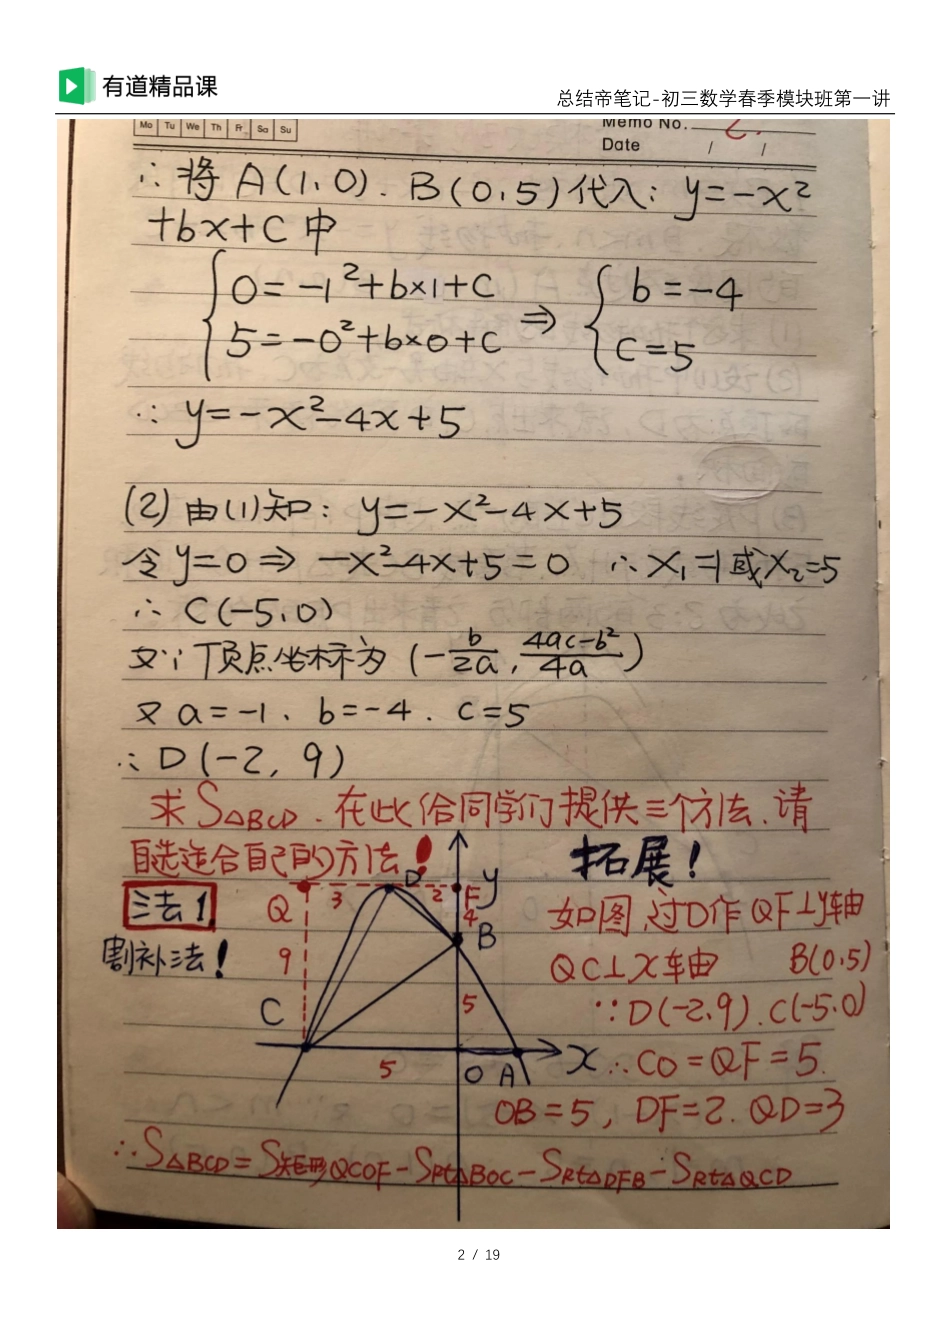 有道精品课
总结帝笔记-初三数学春季模块班第一讲
Mo Tu We Th Fr Sa Su
Memo No.
Date / /
∴将 A(1,0)、B(0,5)代入: y=-x²
+bx+c 中
0=-1²+b×1+c
5=-0²+b×0+c
⇒
b=-4
c=5
∴ y=-x²-4x+5
(2) 由(1)知: y=-x²-4x+5
令 y=0 ⇒ -x²-4x+5=0 ∴ x₁=1或x₂=-5
∴ C(-5,0)
又∵顶点坐标为 (-b/2a, 4ac-b²/4a)
又 a=-1、b=-4、c=5
∴ D(-2, 9)
求S△BCD. 在此给同学们提供三个方法、请
自选适合自己的方法!
拓展!
法1
割补法!
Q 3 D 2 F y
4
B
9
5
C
5 O A x
如图,过D作QF⊥y轴
QC⊥x轴 B(0,5)
∵D(-2,9). C(-5,0)
∴CO=QF=5.
OB=5, DF=2. QD=3
∴S△BCD=S矩形QCOF-SRt△BOC-SRt△DFB-SRt△QCD
2 / 19